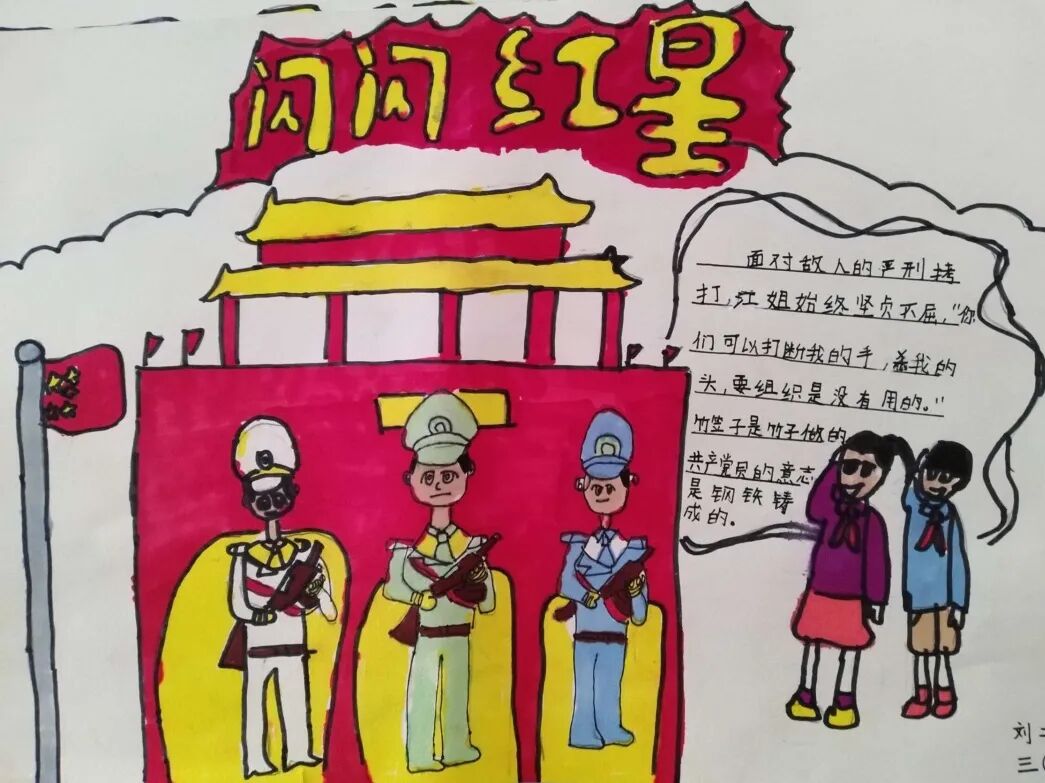 闪闪红星
面对敌人的严刑拷
打,江姐始终坚贞不屈,"你
们可以打断我的手,杀我的
头,要组织是没有用的。"
竹签子是竹子做的
共产党员的意志
是钢铁铸
成的。
刘
三(